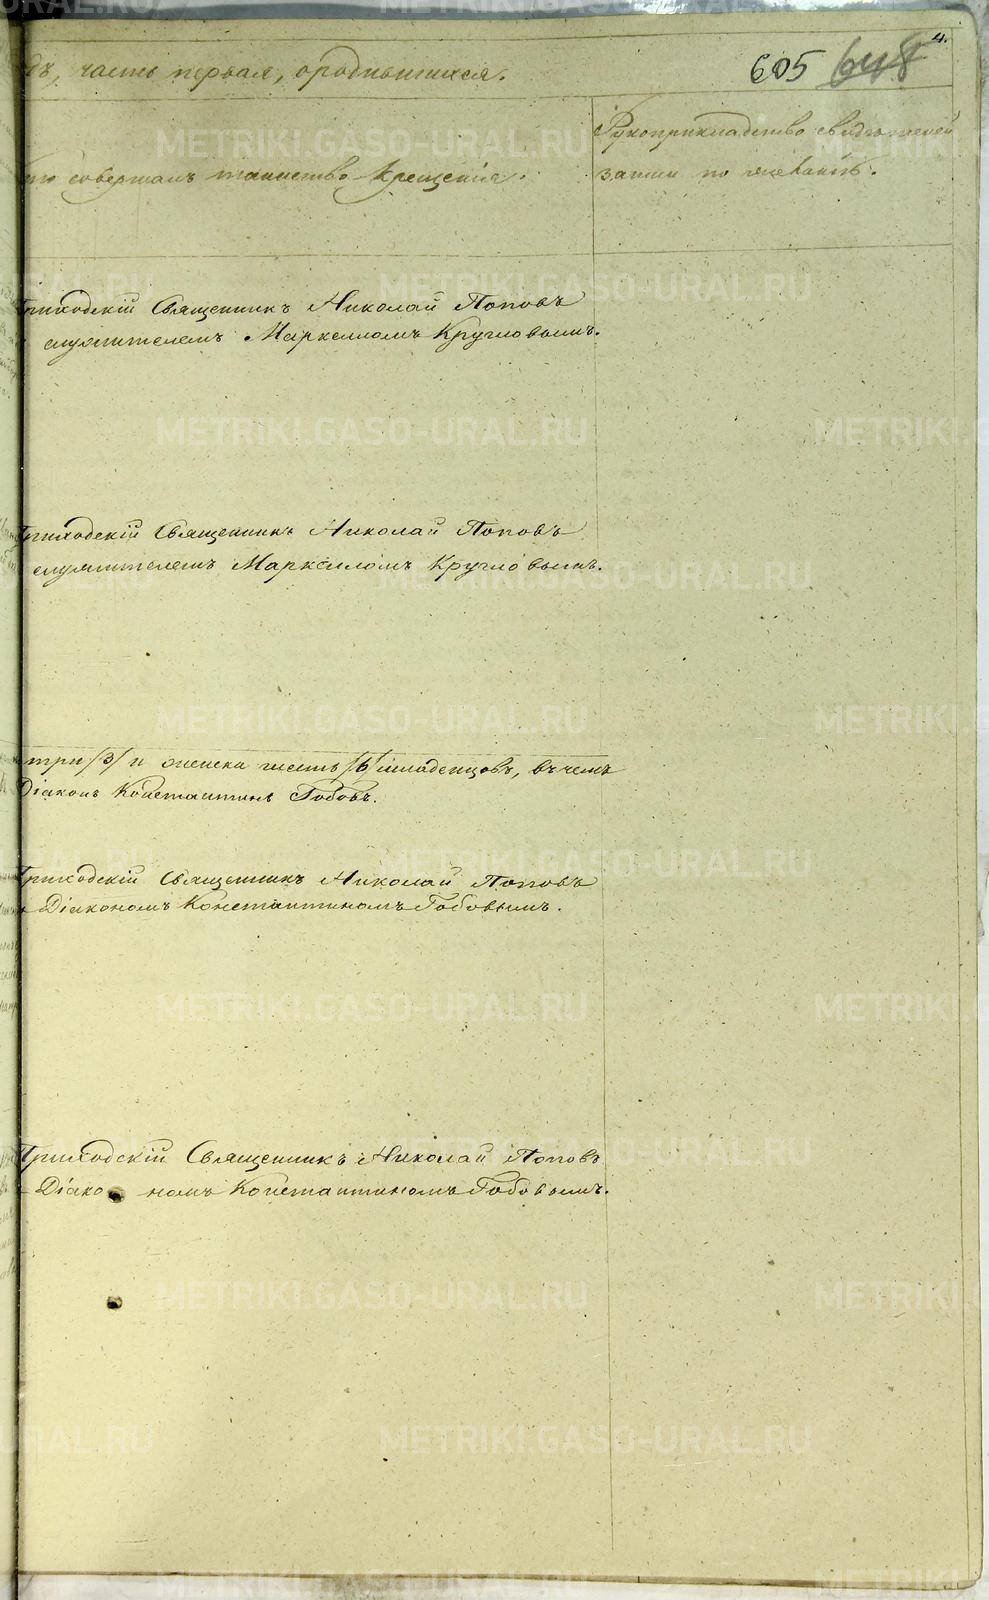 4.
605 648
дъ, часть первая, ородившихся.
Рукоприкладство свидѣтелей
то совершалъ таинство Крещенія.
записи по желанію.
Приходскій Священникъ Николай Поповъ
служителемъ Маркелломъ Кругловымъ.
Приходскій Священникъ Николай Поповъ
служителемъ Маркелломъ Кругловымъ.
три /3/ и женска шесть /6/ младенцовъ, въ чемъ
Діаконъ Константинъ Бобовъ.
Приходскій Священникъ Николай Поповъ
Діакономъ Константиномъ Бобовымъ.
Приходскій Священникъ Николай Поповъ
Діако номъ Константиномъ Бобовымъ.
METRIKI.GASO-URAL.RU